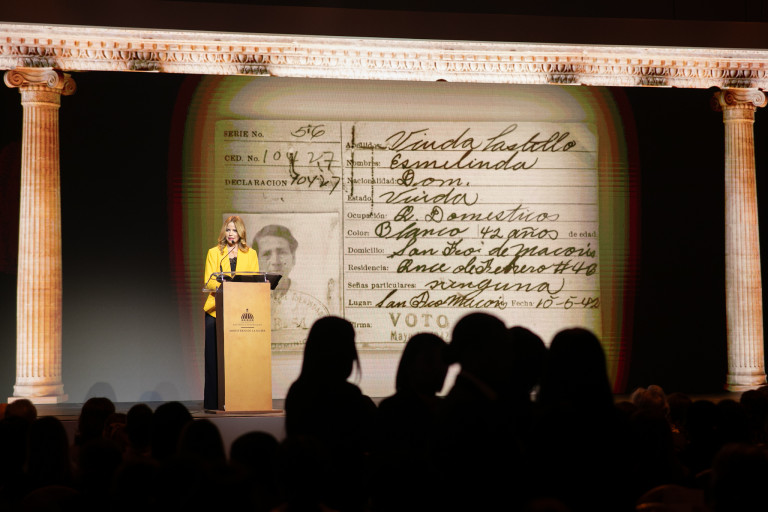 SERIE No. 56
CED. No. 10427
DECLARACION 10427
Apellidos: Viuda Castillo
Nombres: Esmelinda
Nacionalidad: Dom.
Estado: Viuda
Ocupación: Q. Domesticos
Color: Blanco 42 años de edad
Domicilio: San Fco de Macorís
Residencia: Once de Febrero # 40
Señas particulares: ninguna
Lugar: San Fco Macorís y Fecha: 15-5-42
Firma:
VOTO